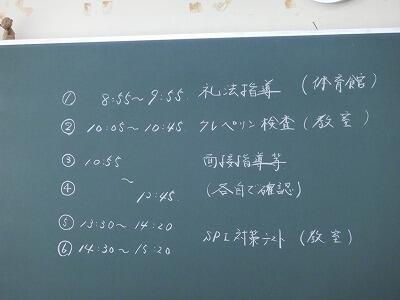 ① 8:55～9:55. 礼法指導 (体育館)
② 10:05～10:45. クレペリン検査 (教室)
③ 10:55 面接指導等
④ ～12:45. (各自で確認)
⑤ 13:30～14:20
SPI対策テスト (教室)
⑥ 14:30～15:20